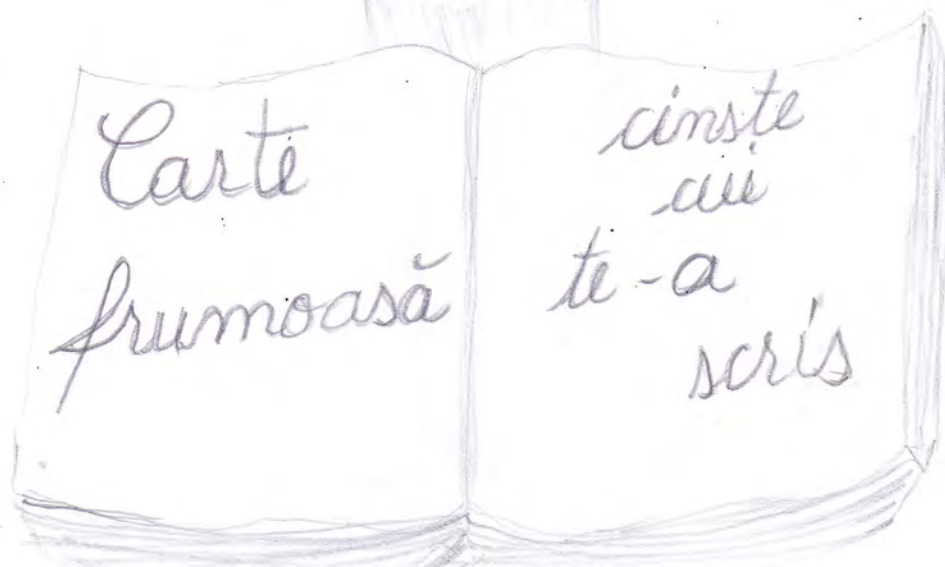 Carte
frumoasă
cinste
cui
te-a
scris